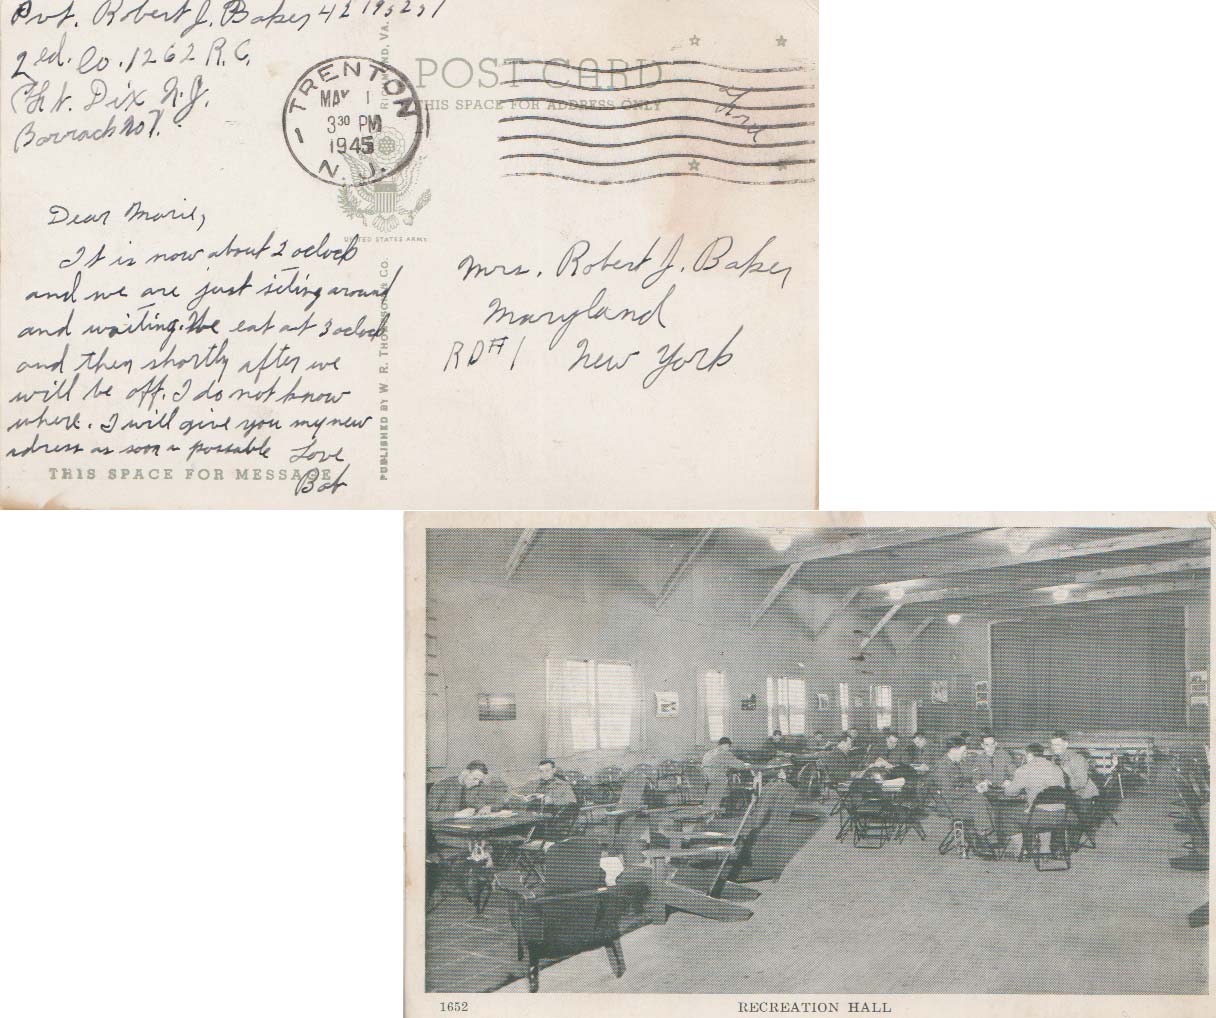 Pvt. Robert J. Baker
2ed. Co. 1262 R.C.
Ft. Dix N.J.
Barrack No 7.
TRENTON
MAY 1
3 30 PM
1945
N. J.
1
POST CARD
THIS SPACE FOR ADDRESS ONLY
Free
UNITED STATES ARMY
Dear Marie,
It is now about 2 oclock
and we are just siting around
and waiting. We eat at 3 oclock
and then shortly after we
will be off. I do not know
where. I will give you my new
adress as soon a possable Love
Bob
THIS SPACE FOR MESSAGE
PUBLISHED BY W. R. THOMPSON & CO.
RICHMOND, VA.
Mrs. Robert J. Baker
Maryland
RD#1 New York
1652
RECREATION HALL